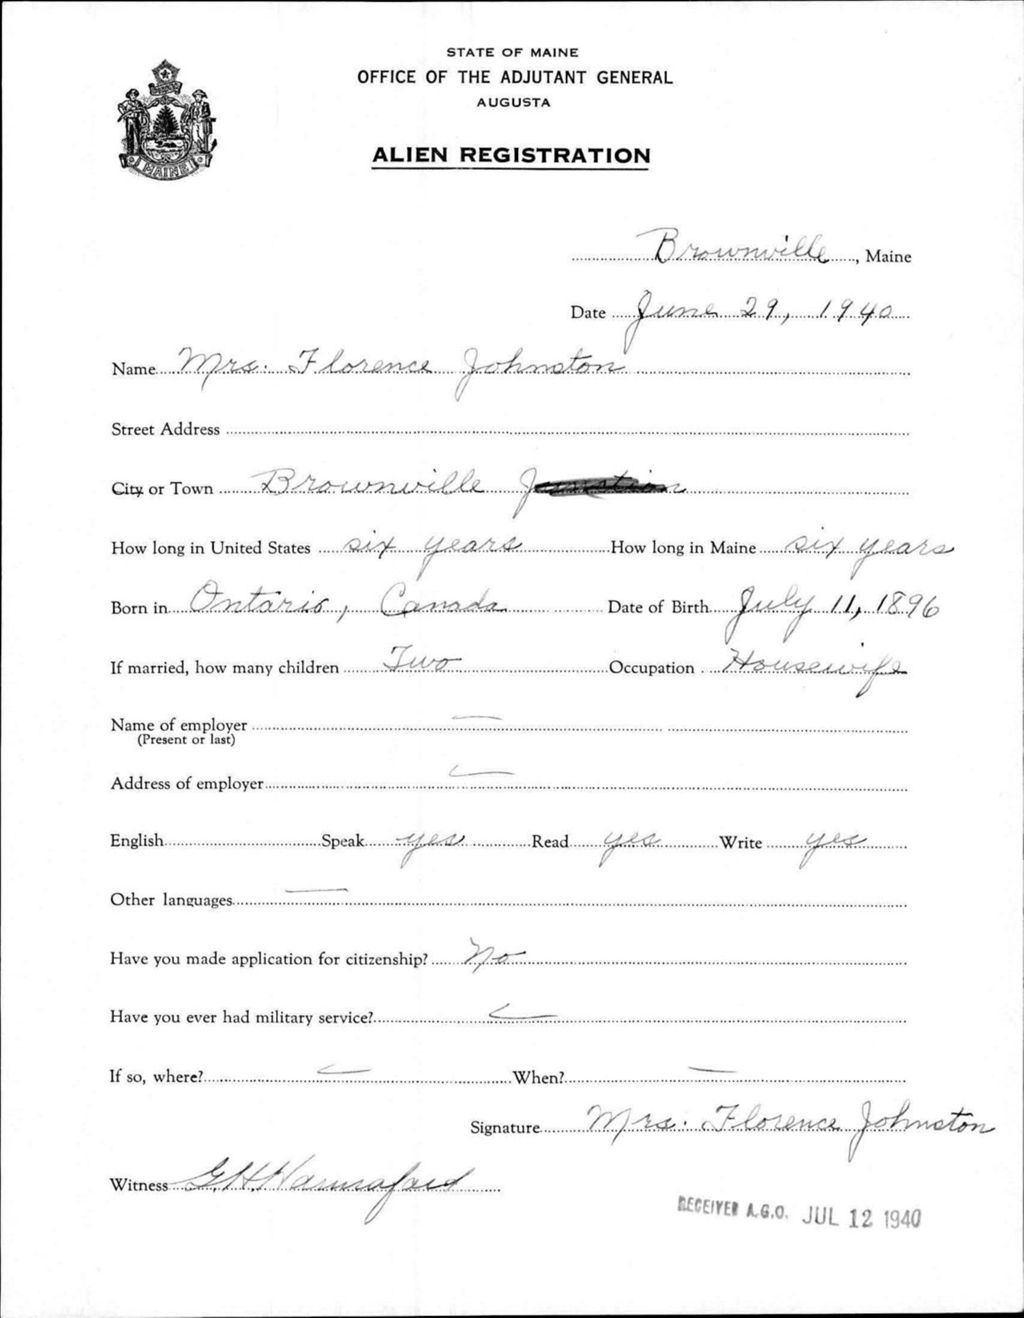 STATE OF MAINE
OFFICE OF THE ADJUTANT GENERAL
AUGUSTA
ALIEN REGISTRATION
MAINE
Brownville, Maine
Date June 29, 1940
Name Mrs. Florence Johnston
Street Address
City or Town Brownville
How long in United States six years How long in Maine six years
Born in Ontario, Canada Date of Birth July 11, 1896
If married, how many children Two Occupation Housewife
Name of employer —
(Present or last)
Address of employer —
English Speak yes Read yes Write yes
Other languages —
Have you made application for citizenship? No
Have you ever had military service? —
If so, where? — When? —
Signature Mrs. Florence Johnston
Witness G.H.
RECEIVED A.G.O. JUL 12 1940